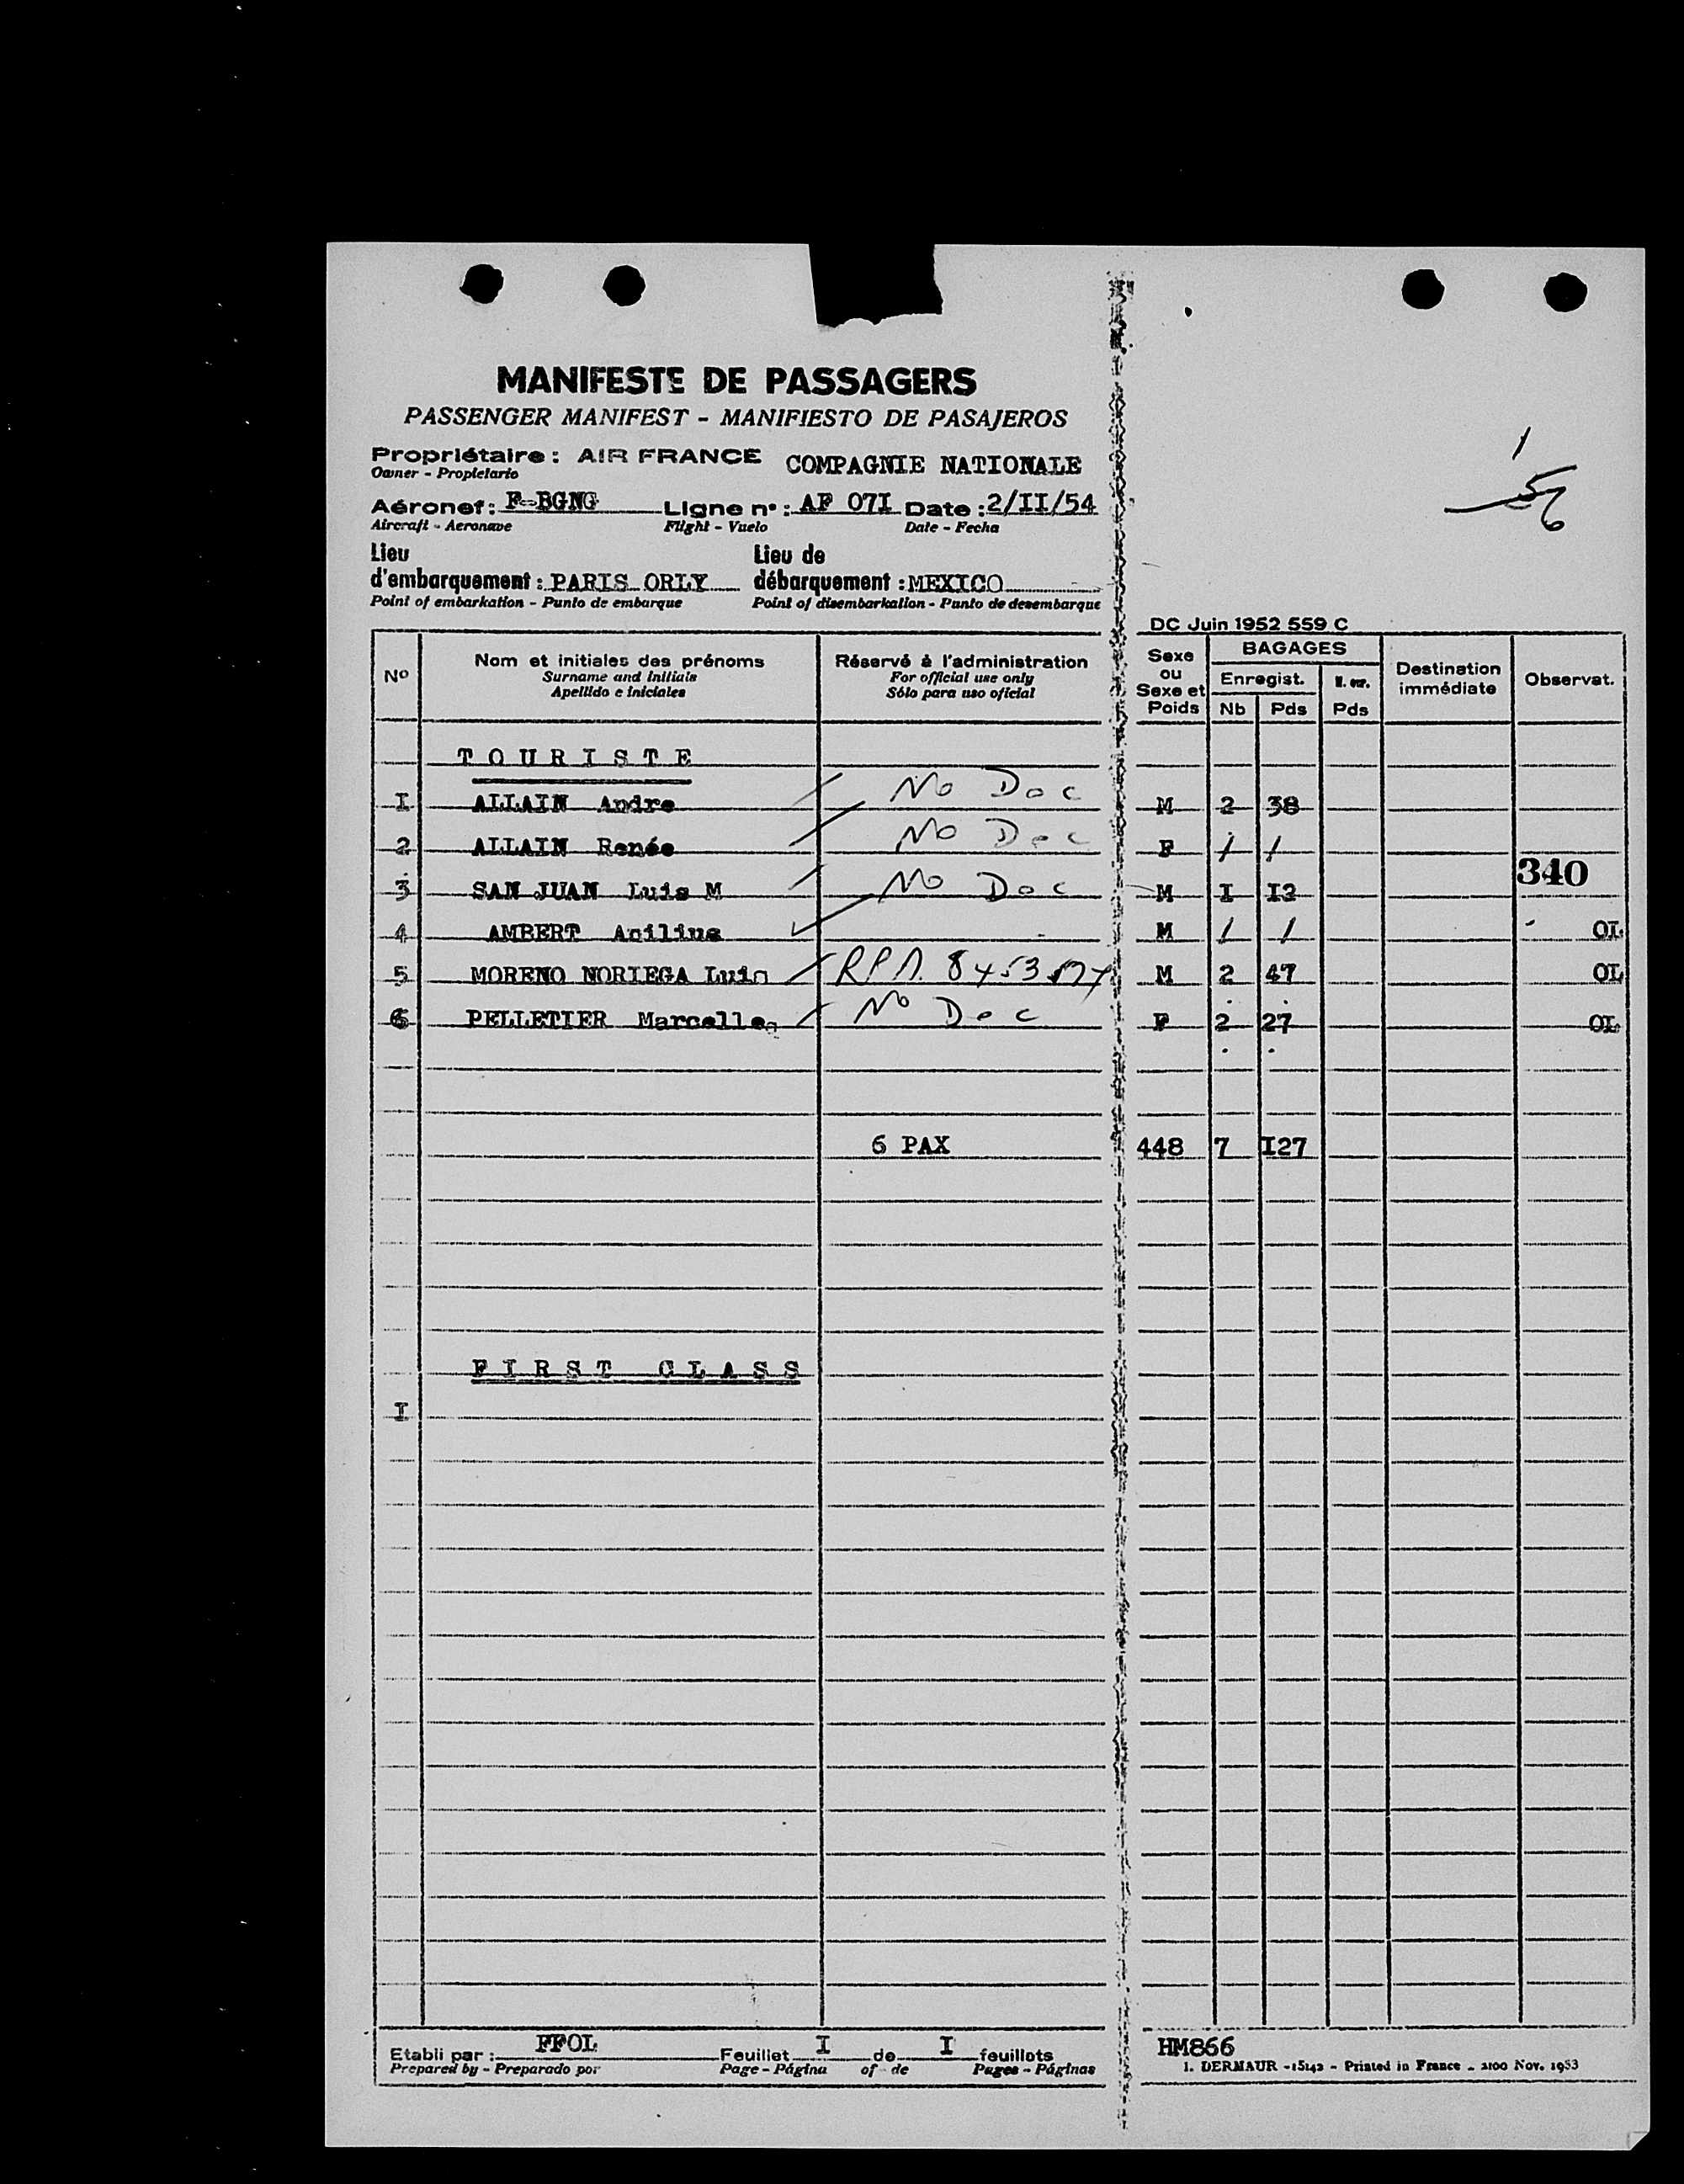 MANIFESTE DE PASSAGERS
PASSENGER MANIFEST - MANIFIESTO DE PASAJEROS
Propriétaire : AIR FRANCE COMPAGNIE NATIONALE
Owner - Propietario
Aéronef : F-BGNG Ligne n° : AF 07I Date : 2/II/54
Aircraft - Aeronave Flight - Vuelo Date - Fecha
Lieu d'embarquement : PARIS ORLY Lieu de débarquement : MEXICO
Point of embarkation - Punto de embarque Point of disembarkation - Punto de desembarque
DC Juin 1952 559 C
N° Nom et initiales des prénoms Réservé à l'administration Sexe ou Sexe et Poids BAGAGES Destination immédiate Observat.
Surname and initials For official use only Enregist. N. er.
Apellido e iniciales Sólo para uso oficial Nb Pds Pds
TOURISTE
I ALLAIN Andre No Doc M 2 38
2 ALLAIN Renée No Doc F / /
340
3 SAN JUAN Luis M No Doc M I I3
4 AMBERT Acilius M / / OL
5 MORENO NORIEGA Luis RPA M 2 47 OL
6 PELLETIER Marcelle No Doc F 2 27 OL
6 PAX 448 7 I27
FIRST CLASS
I
Etabli par : FFOL Feuillet I de I feuillets HM866
Prepared by - Preparado por Page - Página of - de Pages - Páginas
I. DERMAUR - 15142 - Printed in France - 2100 Nov. 1953